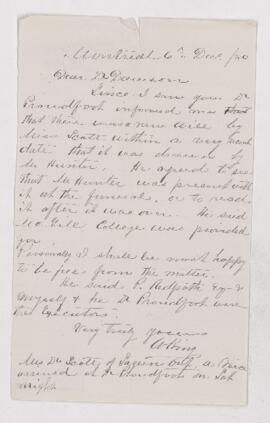 Montreal 6th Dec /80
Dear Dr Dawson
Since I saw you Dr
Proudfoot informed me
that there was a new will by
Miss Scott within a very recent
date that it was drawn by
Mr Hunter. He agreed to see
that Mr Hunter was present with
it at the funeral, or to read
it after it was over. He said
McGill College was provided
for.
Personally I shall be most happy
to be free from the matter.
He said P. Redpath Esq &
myself & he Dr Proudfoot were
the Executors.
Very truly yours
W King
Mrs Dr Scott of a Niece
arrived at Dr Proudfoot on Sat
night